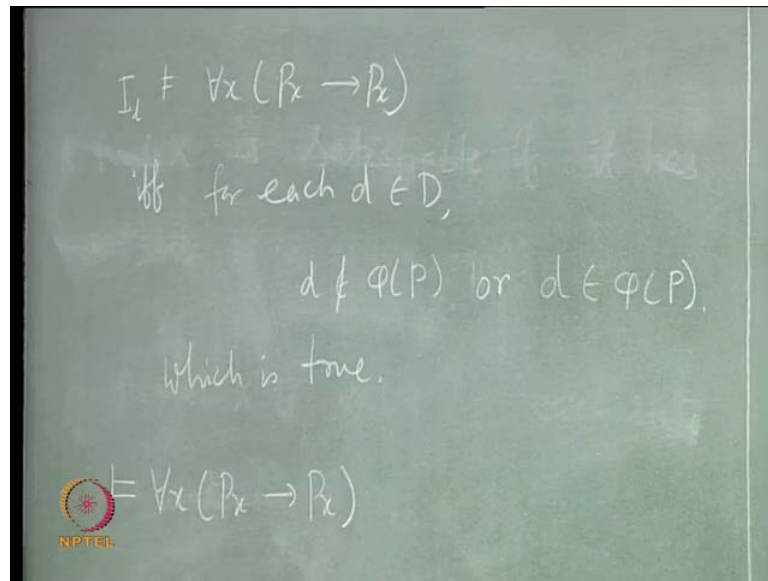 I_l ⊧ ∀x (Px → Px)
iff for each d ∈ D,
d ∉ φ(P) or d ∈ φ(P).
which is true.
⊨ ∀x (Px → Px)
NPTEL